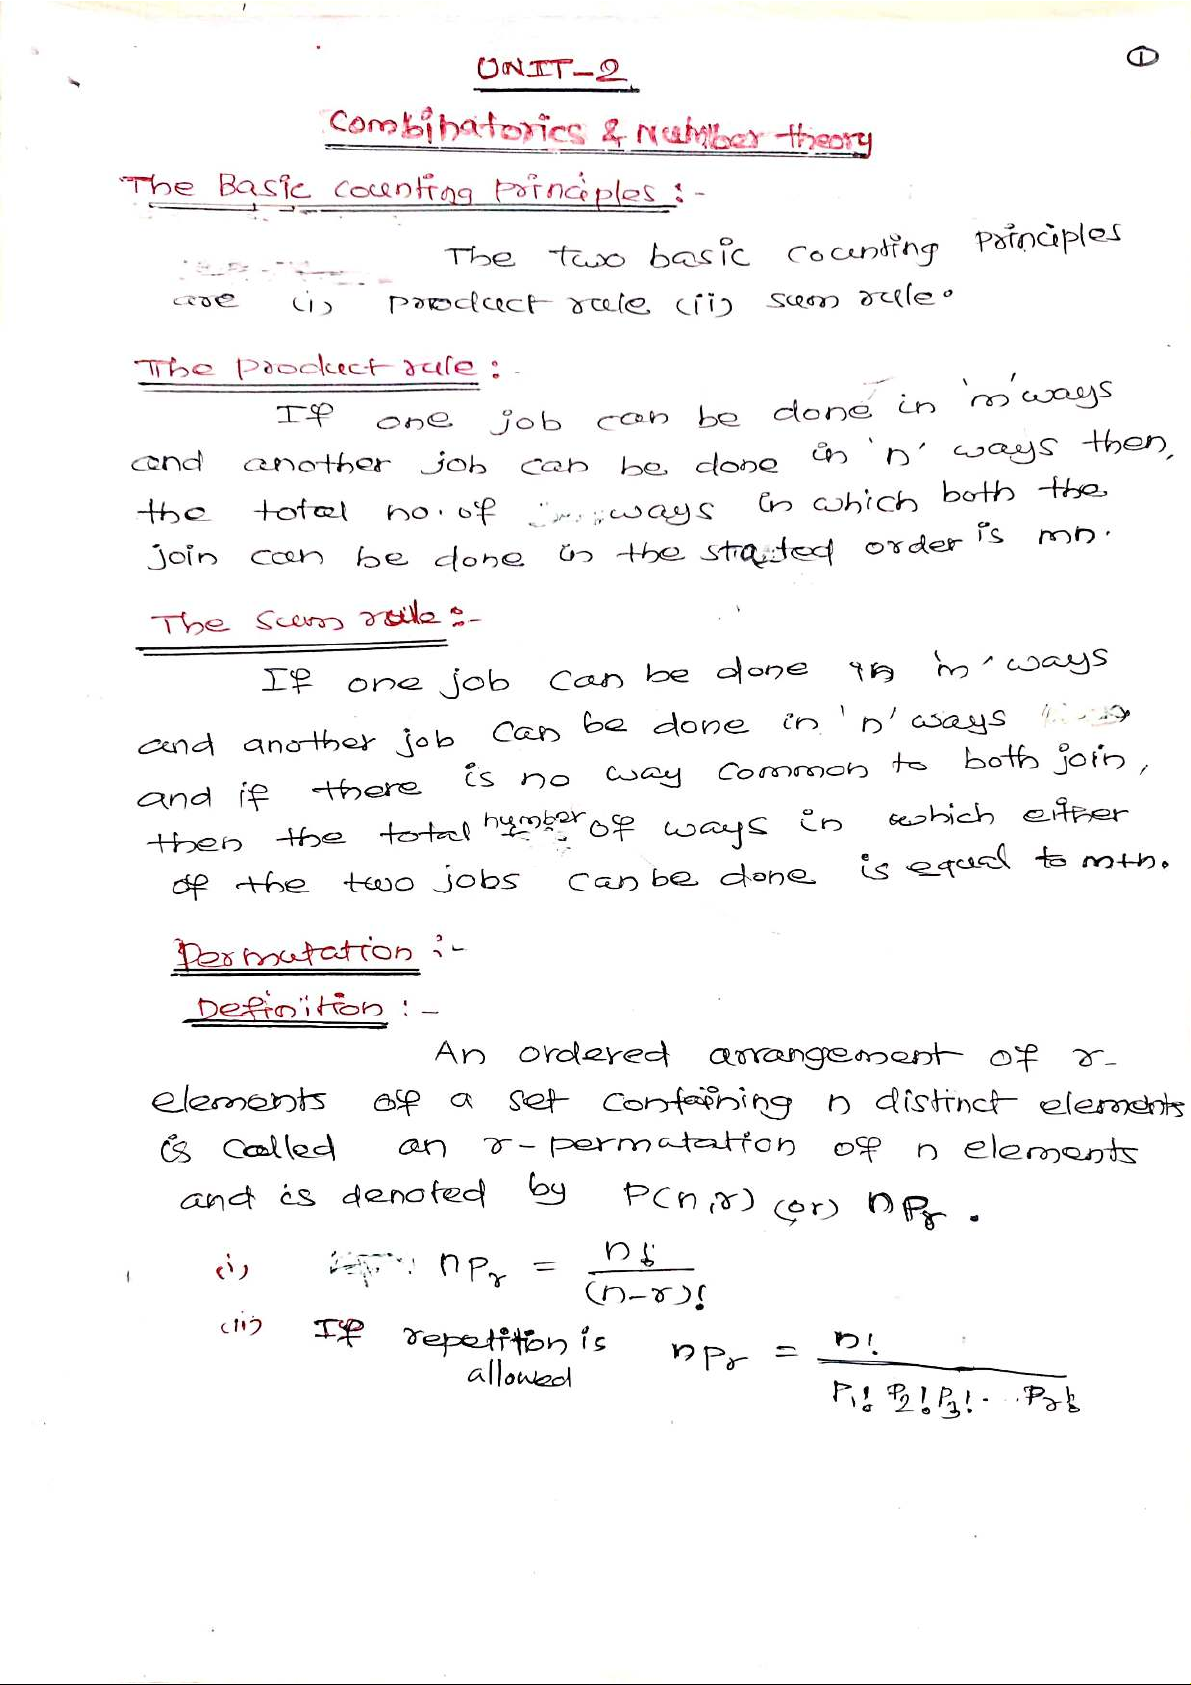 ①
UNIT-2
Combinatorics & Number theory
The Basic counting principles :-
The two basic counting principles
are (i) product rule (ii) sum rule.
The product rule :
If one job can be done in 'm' ways
and another job can be done in 'n' ways then,
the total no. of ways in which both the
join can be done in the started order is mn.
The sum rule :-
If one job can be done in 'm' ways
and another job can be done in 'n' ways
and if there is no way common to both join,
then the total number of ways in which either
of the two jobs can be done is equal to m+n.
Permutation :-
Definition :-
An ordered arrangement of r-
elements of a set containing n distinct elements
is called an r-permutation of n elements
and is denoted by P(n,r) (or) nPr.
(i) nPr = n! / (n-r)!
(ii) If repetition is allowed nPr = n! / P1! P2! P3! ... Pr!